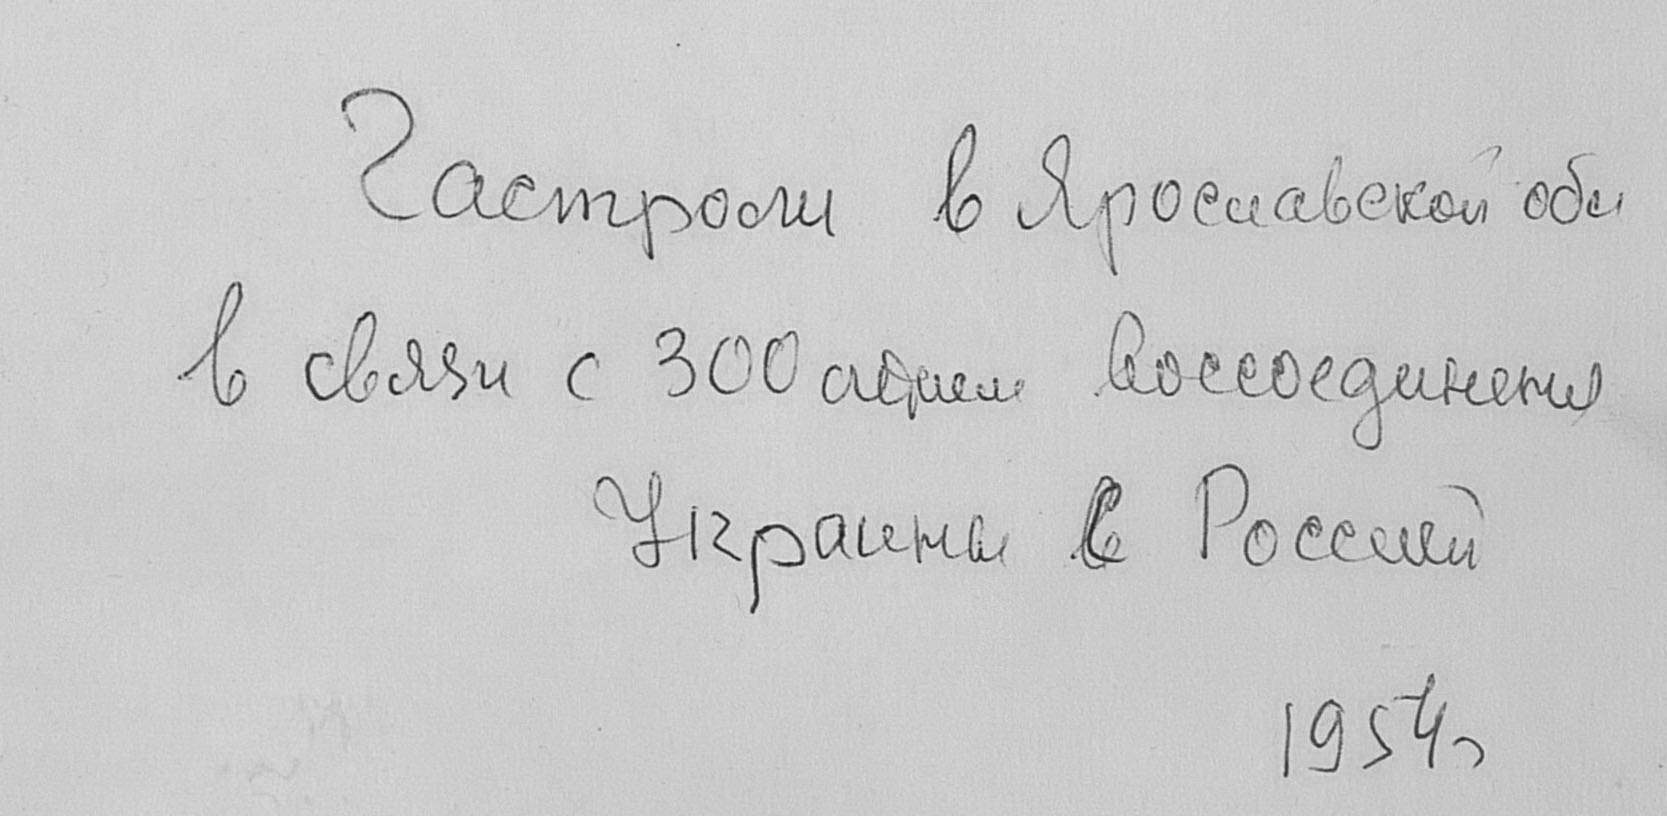 Гастроли в Ярославской обл
в связи с 300 летием Воссоединения
Украины с Россией
1954г